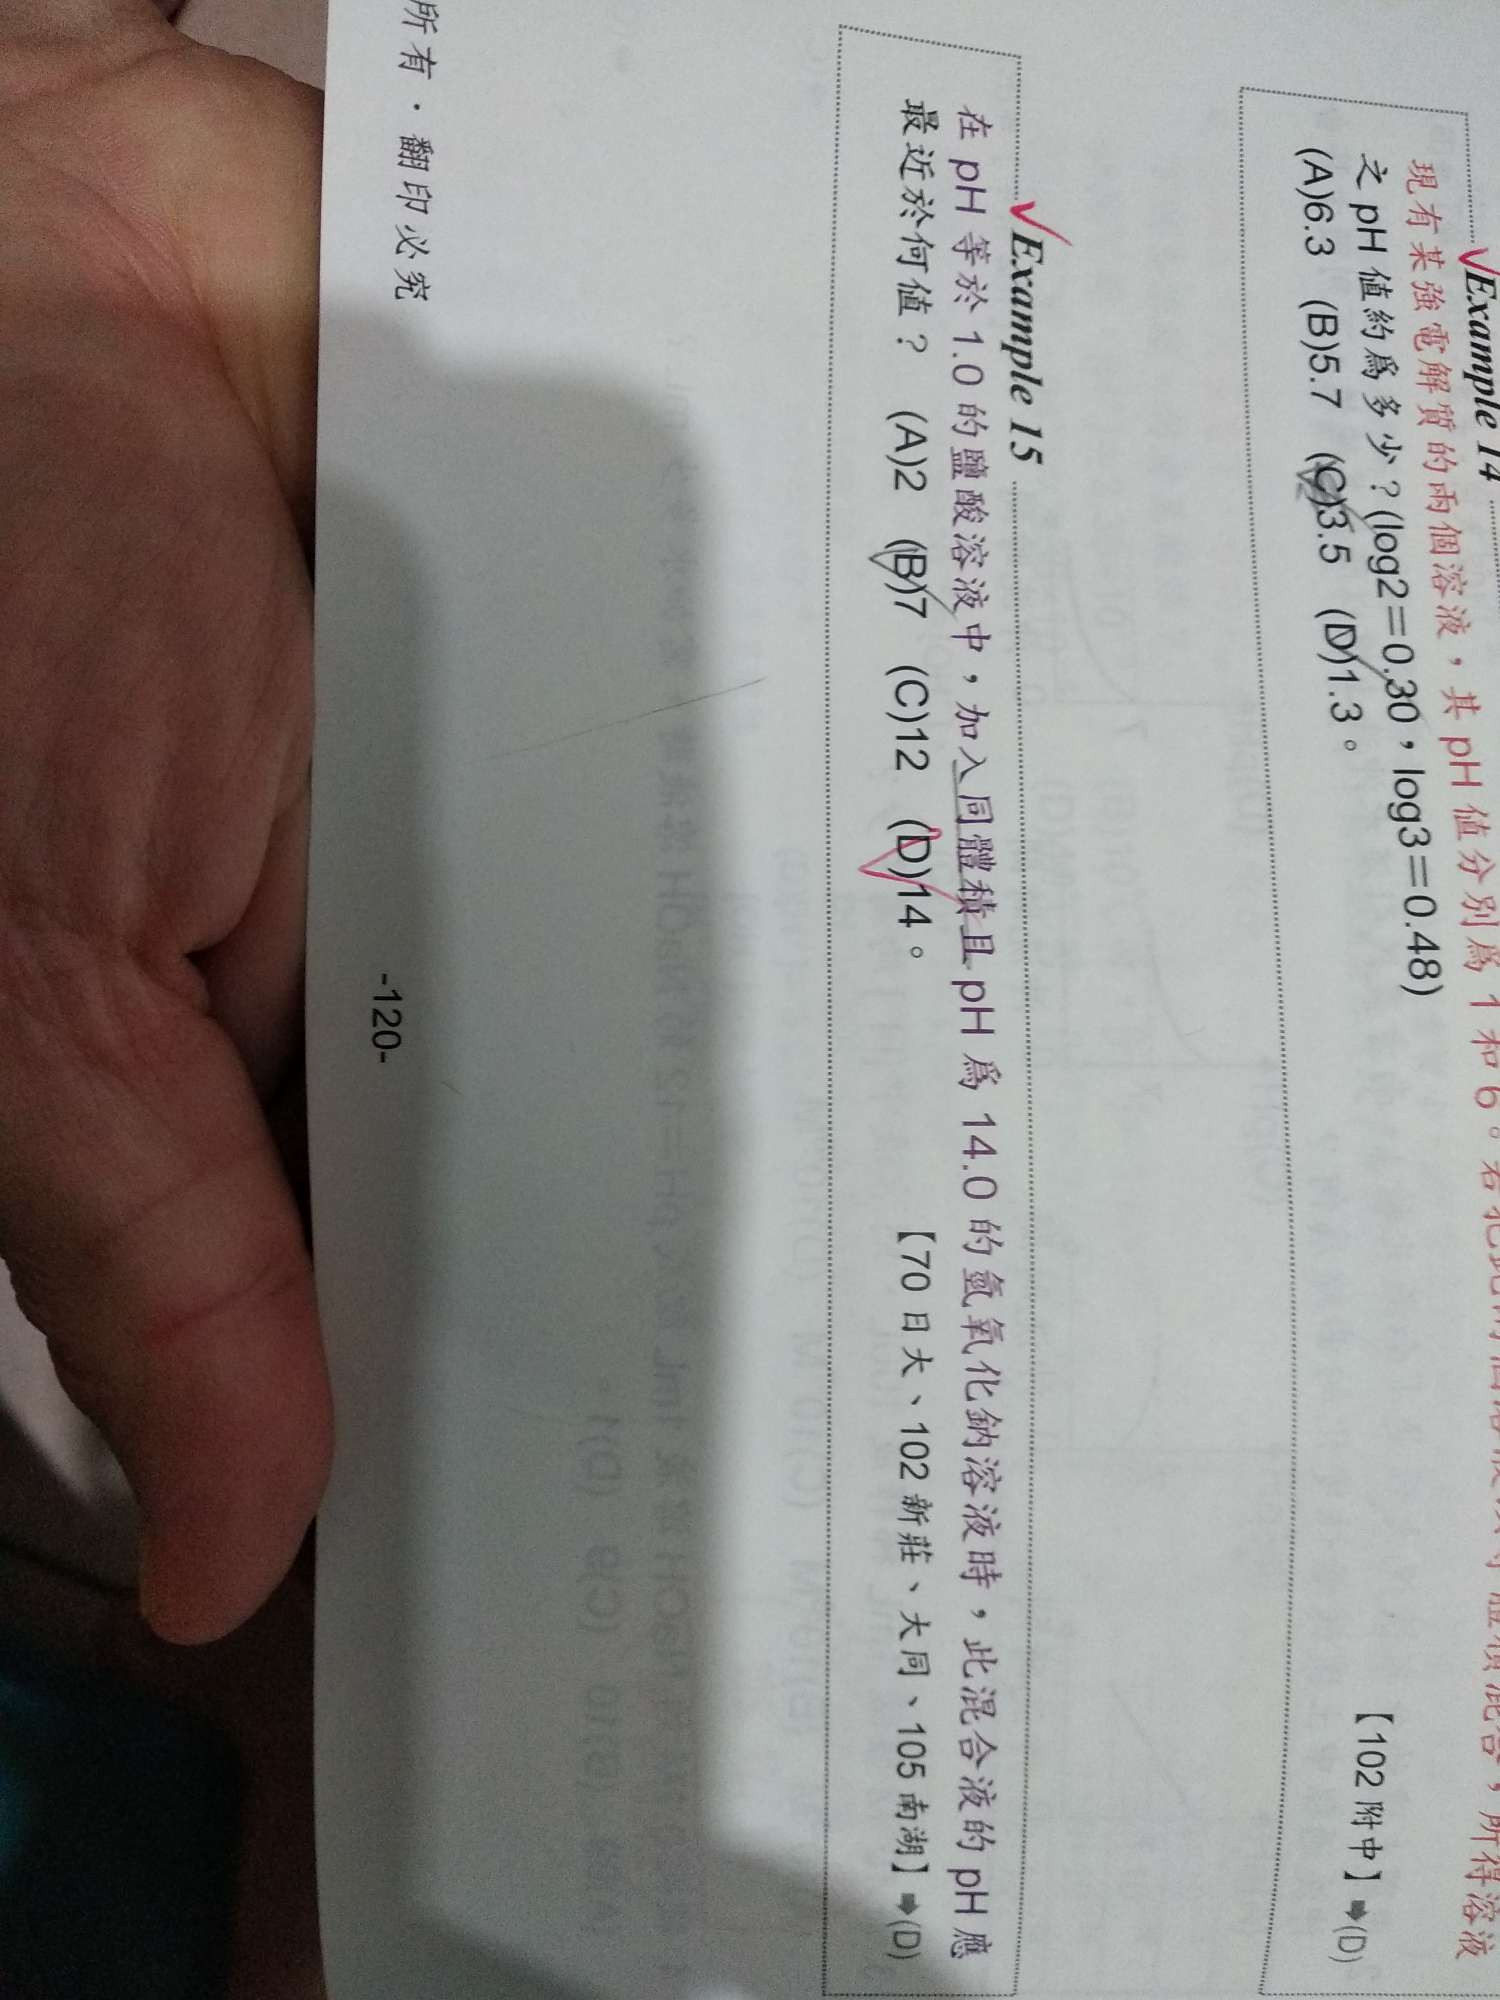 Example 14
現有某強電解質的兩個溶液，其 pH 值分別爲 1 和 6。若把此兩個溶液以等體積混合，所得溶液
之 pH 值約爲多少？(log2＝0.30，log3＝0.48)
【102 附中】➡(D)
(A)6.3 (B)5.7 (C)3.5 (D)1.3。
Example 15
在 pH 等於 1.0 的鹽酸溶液中，加入同體積且 pH 爲 14.0 的氫氧化鈉溶液時，此混合液的 pH 應
最近於何值？ (A)2 (B)7 (C)12 (D)14。 【70 日大、102 新莊、大同、105 南湖】➡(D)
-120-
所有．翻印必究